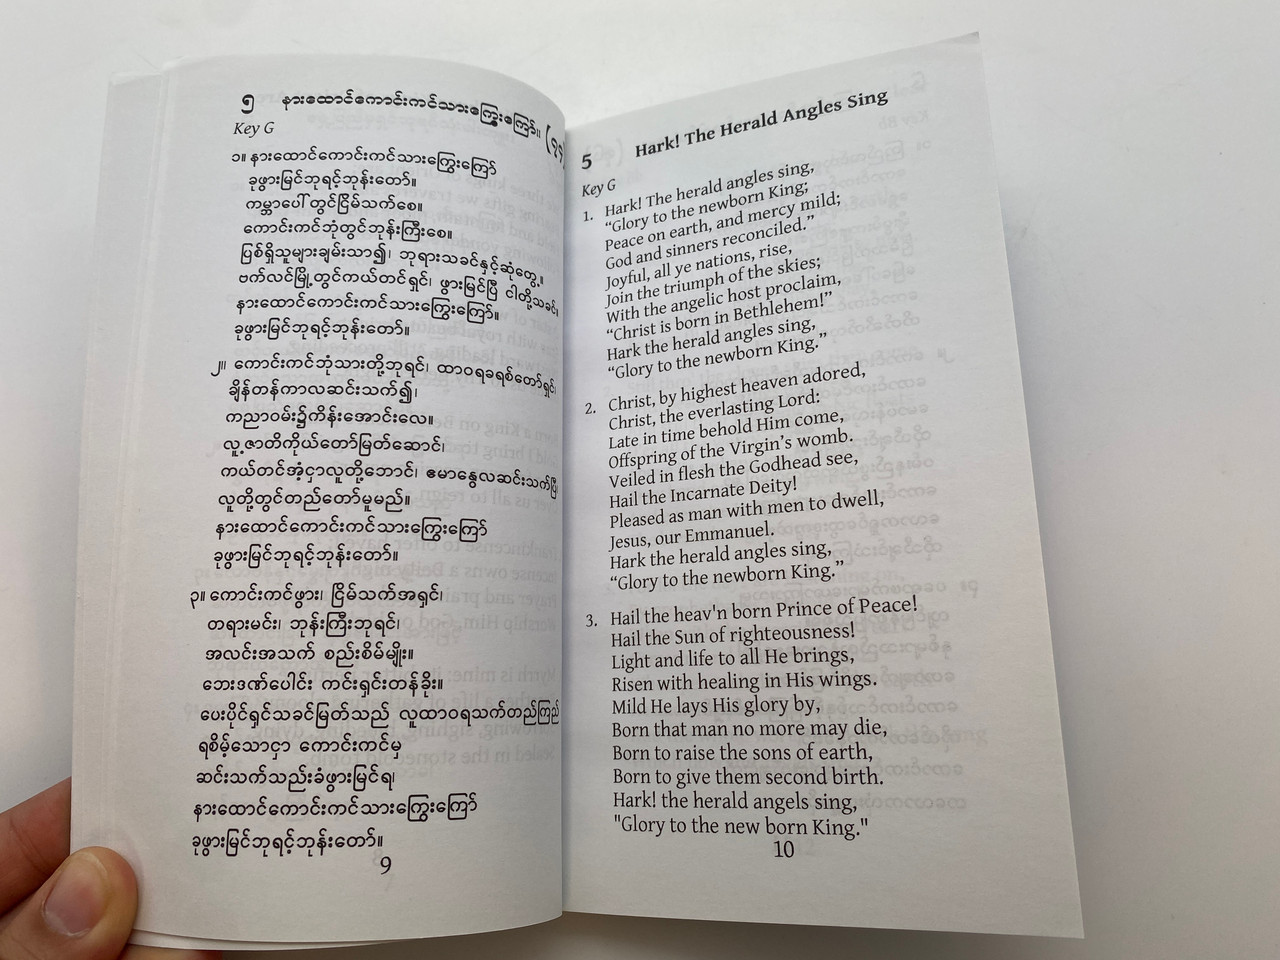 ၅ နားထောင်ကောင်းကင်သားကြွေးကြော်။ (၇၄)
Key G
၁။ နားထောင်ကောင်းကင်သားကြွေးကြော်
ခုဖွားမြင်ဘုရင့်ဘုန်းတော်။
ကမ္ဘာပေါ်တွင်ငြိမ်သက်စေ။
ကောင်းကင်ဘုံတွင်ဘုန်းကြီးစေ။
ပြစ်ရှိသူများချမ်းသာ၍၊ ဘုရားသခင်နှင့်ဆုံတွေ့။
ဗက်လင်မြို့တွင်ကယ်တင်ရှင်၊ ဖွားမြင်ပြီ ငါတို့သခင်၊
နားထောင်ကောင်းကင်သားကြွေးကြော်။
ခုဖွားမြင်ဘုရင့်ဘုန်းတော်။
၂။ ကောင်းကင်ဘုံသားတို့ဘုရင်၊ ထာဝရခရစ်တော်ရှင်၊
ချိန်တန်ကာလဆင်းသက်၍၊
ကညာဝမ်း၌ကိန်းအောင်းလေ။
လူ့ဇာတိကိုယ်တော်မြတ်ဆောင်၊
ကယ်တင်အံ့ငှာလူတို့ဘောင်၊ ဧမာနွေလဆင်းသက်ပြီ၊
လူတို့တွင်တည်တော်မူမည်။
နားထောင်ကောင်းကင်သားကြွေးကြော်
ခုဖွားမြင်ဘုရင့်ဘုန်းတော်။
၃။ ကောင်းကင်ဖွား၊ ငြိမ်သက်အရှင်၊
တရားမင်း၊ ဘုန်းကြီးဘုရင်၊
အလင်းအသက် စည်းစိမ်မျိုး။
ဘေးဒဏ်ပေါင်း ကင်းရှင်းတန်ခိုး။
ပေးပိုင်ရှင်သခင်မြတ်သည် လူထာဝရသက်တည်ကြည်
ရစိမ့်သောငှာ ကောင်းကင်မှ
ဆင်းသက်သည်းခံဖွားမြင်ရ၊
နားထောင်ကောင်းကင်သားကြွေးကြော်
ခုဖွားမြင်ဘုရင့်ဘုန်းတော်။
9
5 Hark! The Herald Angles Sing
Key G
1. Hark! The herald angles sing,
“Glory to the newborn King;
Peace on earth, and mercy mild;
God and sinners reconciled.”
Joyful, all ye nations, rise,
Join the triumph of the skies;
With the angelic host proclaim,
“Christ is born in Bethlehem!”
Hark the herald angles sing,
“Glory to the newborn King.”
2. Christ, by highest heaven adored,
Christ, the everlasting Lord:
Late in time behold Him come,
Offspring of the Virgin’s womb.
Veiled in flesh the Godhead see,
Hail the Incarnate Deity!
Pleased as man with men to dwell,
Jesus, our Emmanuel.
Hark the herald angles sing,
“Glory to the newborn King.”
3. Hail the heav'n born Prince of Peace!
Hail the Sun of righteousness!
Light and life to all He brings,
Risen with healing in His wings.
Mild He lays His glory by,
Born that man no more may die,
Born to raise the sons of earth,
Born to give them second birth.
Hark! the herald angels sing,
"Glory to the new born King."
10